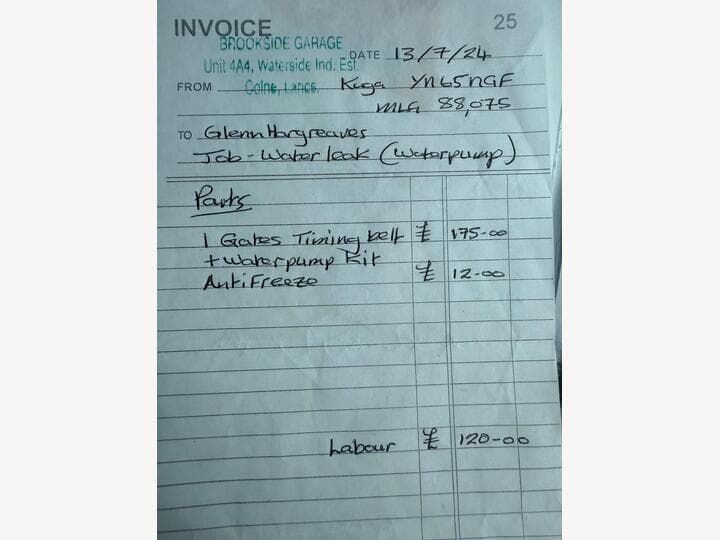 INVOICE 25
BROOKSIDE GARAGE
DATE 13/7/24
Unit 4A4, Waterside Ind. Est.
FROM Colne, Lancs. Kuga YN65NGF
MLG 88,075
TO Glenn Hargreaves
Job - Water leak (Waterpump)
Parts
1 Gates Timing belt £ 175-00
+ Waterpump Kit
AntiFreeze £ 12-00
Labour £ 120-00